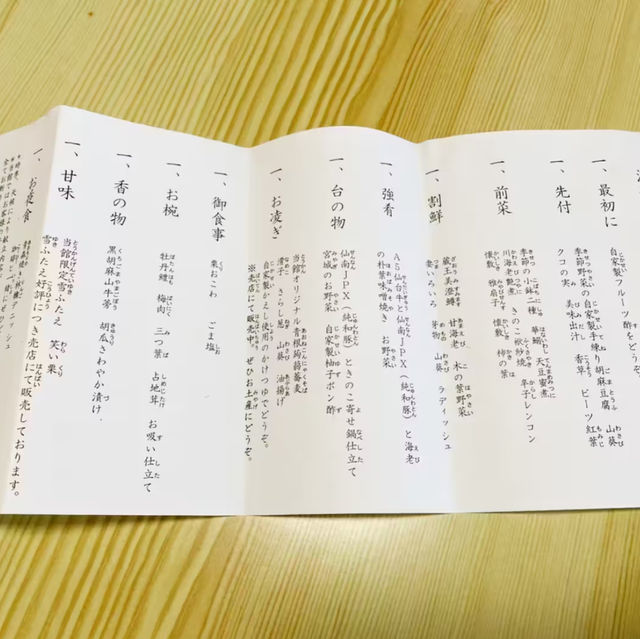 一、最初に
自家製フルーツ酢をどうぞ。
一、先付
自家製手練り胡麻豆腐 山葵
季節野菜の 美味出汁 香草 ビーツ 紅葉
クコの実
一、前菜
季節の小鉢二種 華蝴 天豆蜜煮
川海老艶煮 きのこ松風焼き 辛子レンコン
慢敷 雅扇子 慢敷 柿の葉
一、割鮮
蔵王美澄鱒 甘海老 木の葉野菜
妻いろいろ 芽物 山葵 ラディッシュ
一、強肴
A5仙台牛と仙南JPX(純和豚)と海老
の朴葉味噌焼き お野菜
一、台の物
仙南JPX(純和豚)ときのこ寄せ鍋仕立て
宮城のお野菜 自家製柚子ポン酢
一、お凌ぎ
当館オリジナル青根蒟蒻蕎麦
滑子 さらし葱 山葵 油揚げ
自家製かえし使用のかけつゆでどうぞ。
※売店にて販売中。ぜひお土産にどうぞ。
一、御食事
栗おこわ ごま塩
一、お椀
牡丹鱧 梅肉 三つ葉 占地茸 お吸い仕立て
一、香の物
黒胡麻山牛蒡 胡瓜さわやか漬け
一、甘味
当館限定雪ふたえ 笑い栗
雪ふたえ好評につき売店にて販売しております。
一、お夜食